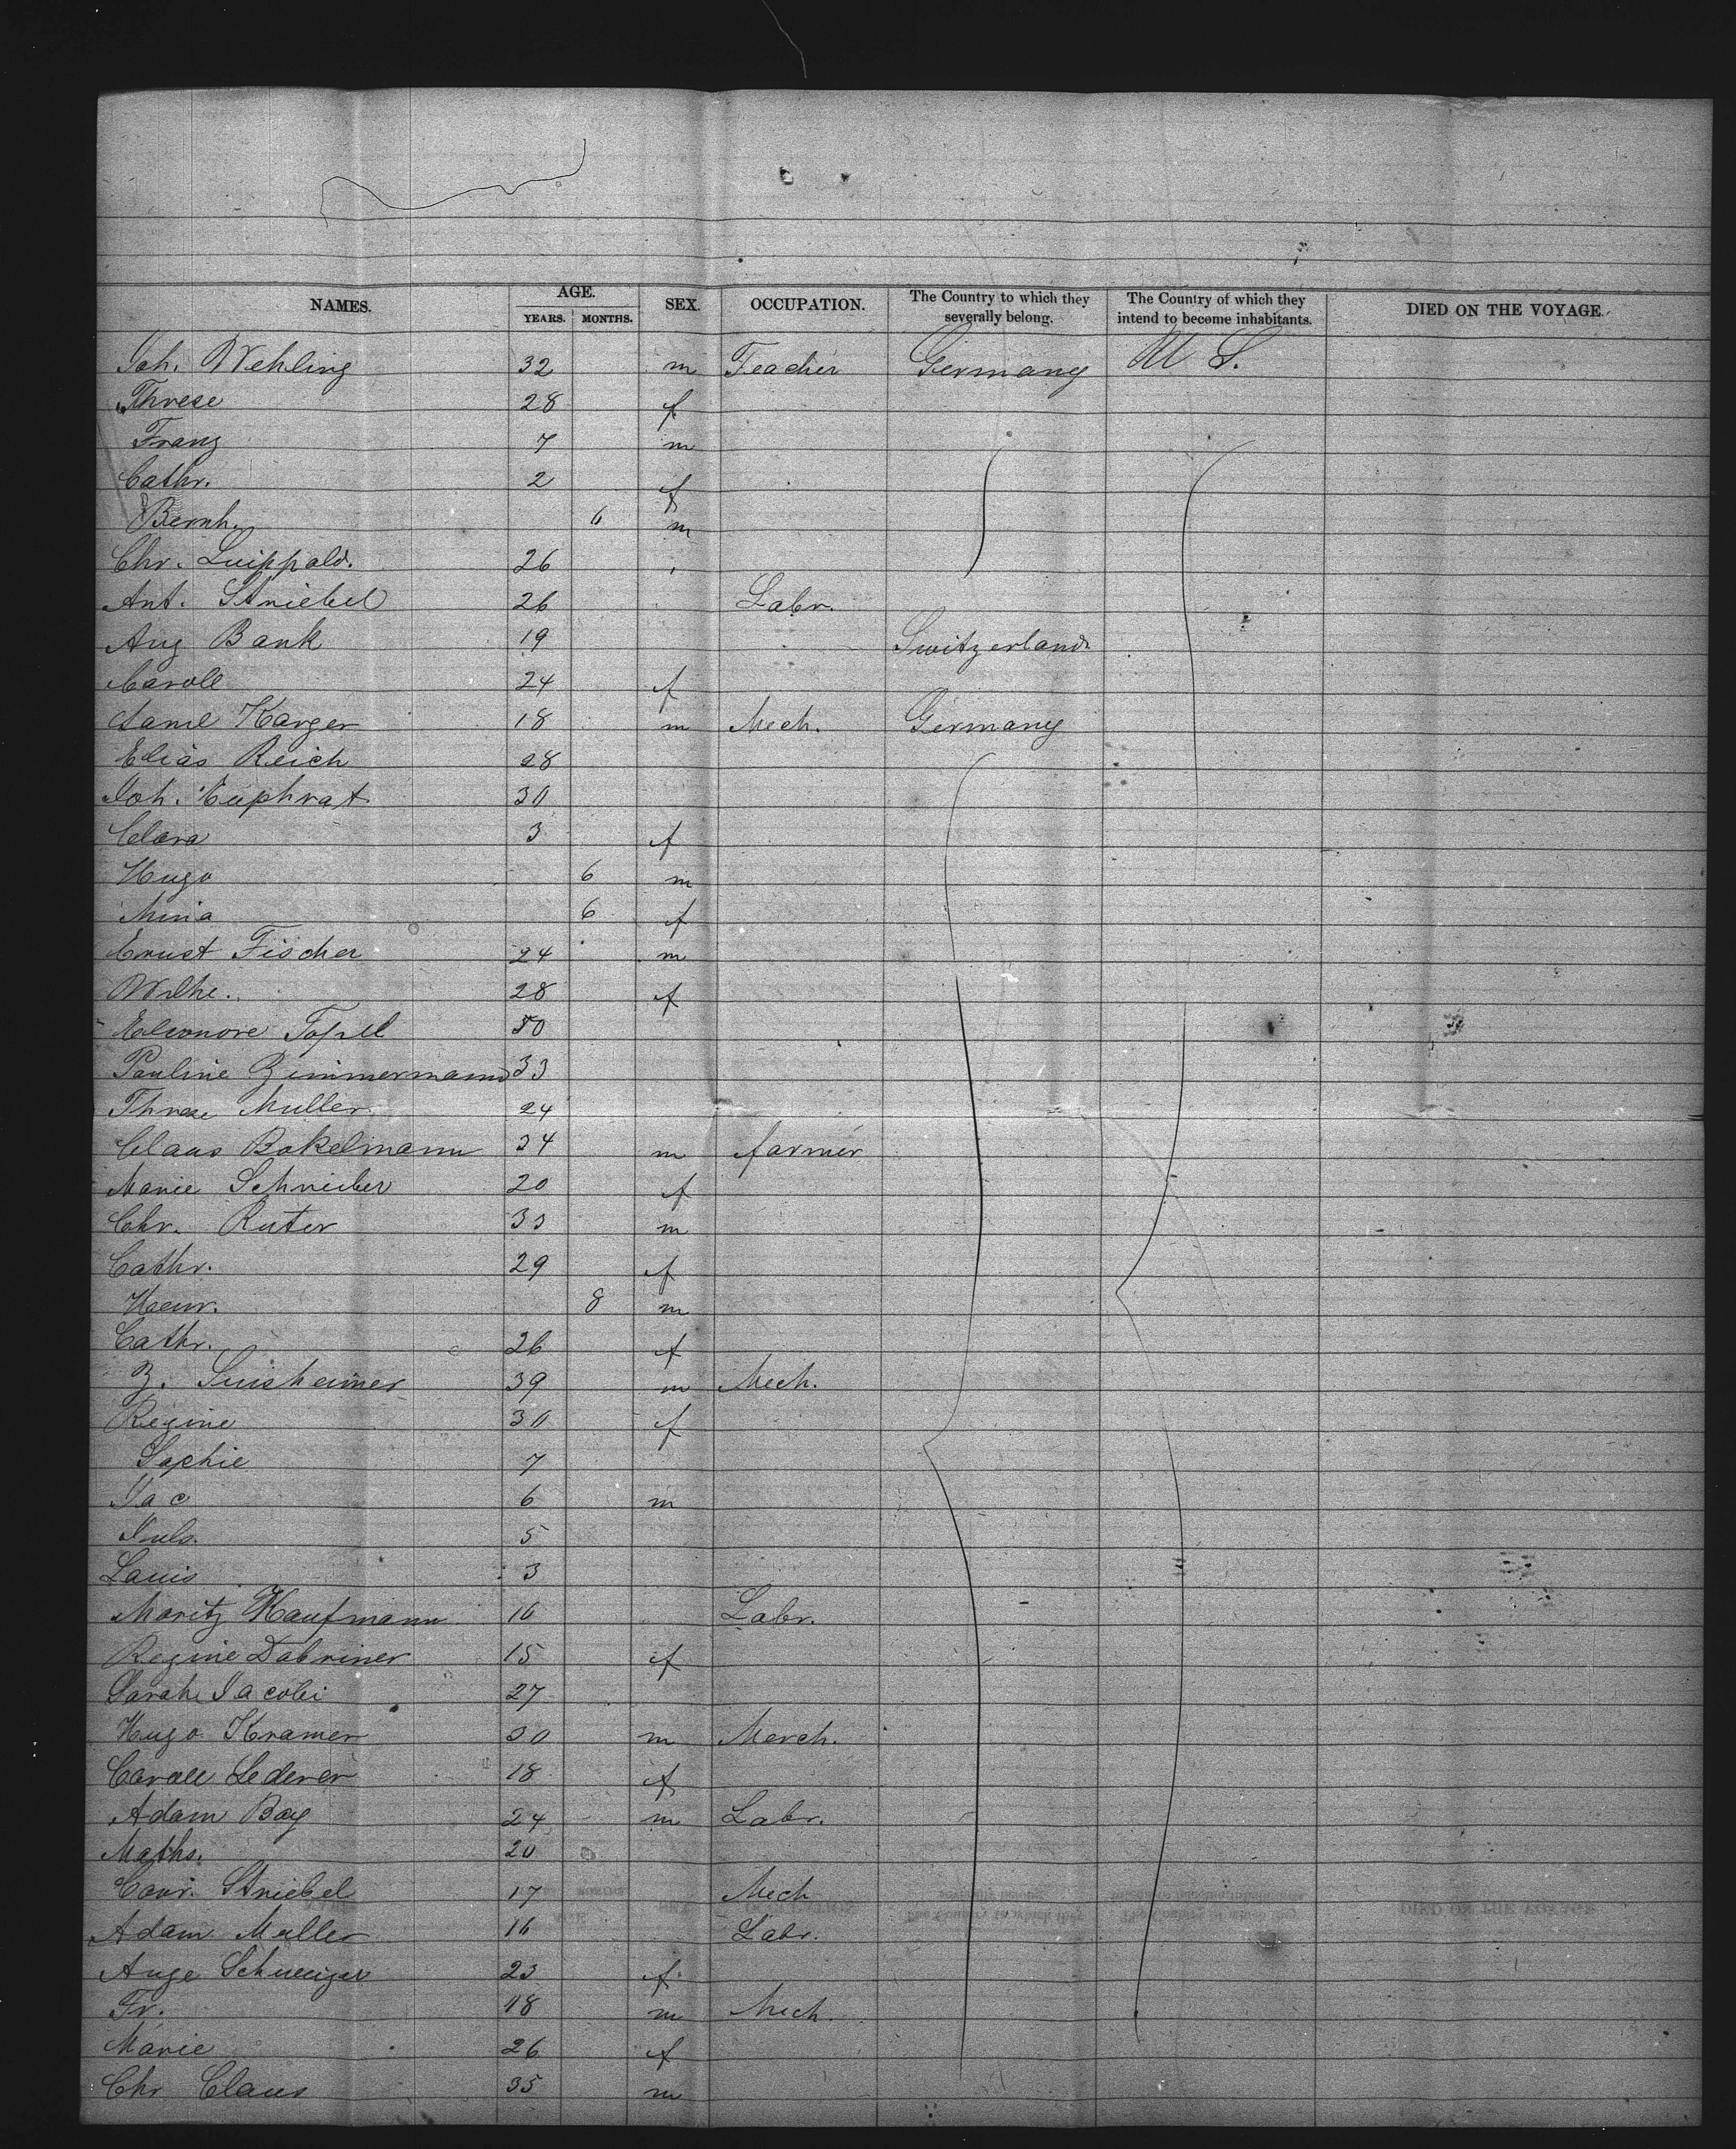 NAMES. AGE. YEARS. MONTHS. SEX. OCCUPATION. The Country to which they severally belong. The Country of which they intend to become inhabitants. DIED ON THE VOYAGE.
Joh. Wehling 32 m Teacher Germany U S.
Threse 28 f
Franz 7 m
Cathr. 2 f
Bernh. 6 m
Chr. Luippold. 26
Ant. Striebel 26 Labr.
Aug Bank 19 Switzerland
Carole 24 f
Saml Karger 18 m Mech. Germany
Elias Reich 28
Joh. Euphrat 30
Clara 3 f
Hugo 6 m
Mina 6 f
Ernst Fischer 24 m
Wilhe. 28 f
Eleonore 50
Pauline Zimmermann 33
Threse Muller 24
Claus Bokelmann 34 m farmer
Marie Schreiber 20 f
Chr. Ruter 33 m
Cathr. 29 f
Heinr. 8 m
Cathr. 26 f
Z. 39 m Mech.
Regine 30 f
Sophie 7
Jac 6 m
Juls. 5
Louis 3
Moritz Kaufmann 16 Labr.
Regine Dobriner 15 f
Sarah Jacobi 27
Hugo Kramer 30 m Merch.
Carole Lederer 18 f
Adam Bay 24 m Labr.
Maths. 20
Conr. Striebel 17 Mech
Adam Muller 16 Labr.
Auge 23 f
Fr. 18 m Mech.
Marie 26 f
Chr Claus 35 m